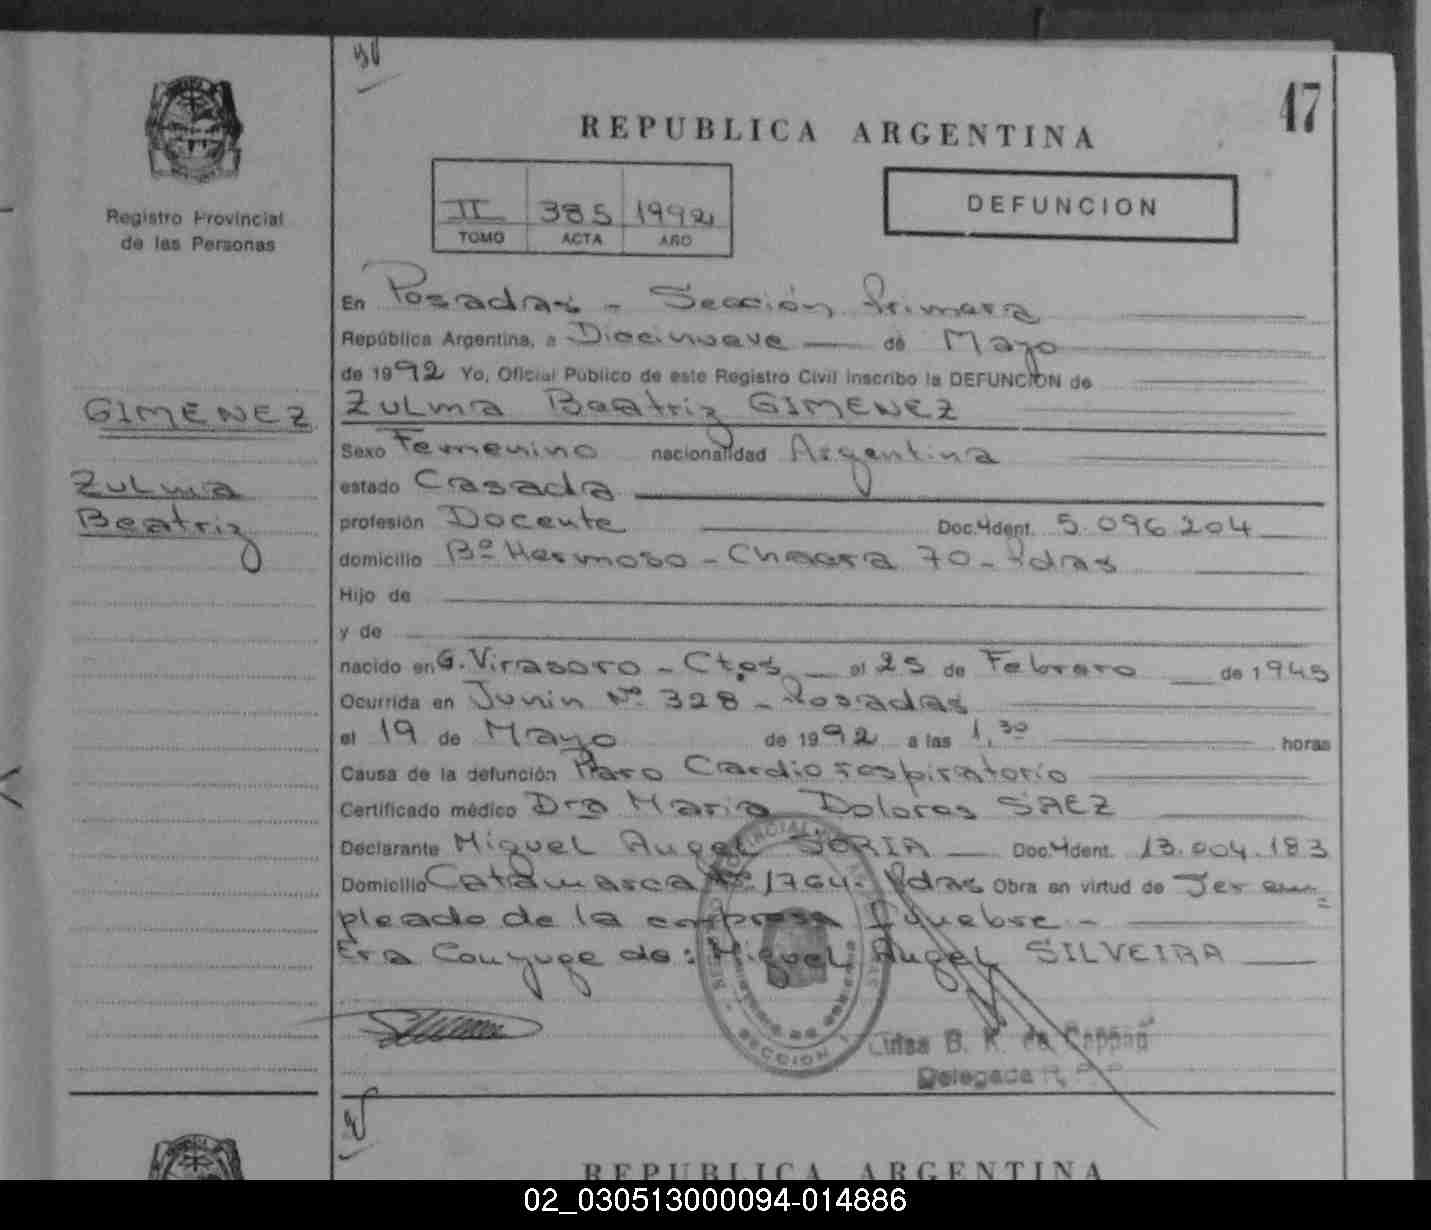 47
REPUBLICA ARGENTINA
Registro Provincial
de las Personas
II 385 1992
TOMO ACTA AÑO
DEFUNCION
En Posadas - Sección Primera
República Argentina, a Diecinueve de Mayo
de 1992 Yo, Oficial Público de este Registro Civil inscribo la DEFUNCION de
GIMENEZ
Zulma Beatriz
ZULMA Beatriz GIMENEZ
Sexo Femenino nacionalidad Argentina
estado Casada
profesión Docente Doc. Ident. 5.096.204
domicilio Bº Hermoso - Chacra 70 - Pdas
Hijo de
y de
nacido en G. Virasoro - Ctes el 25 de Febrero de 1945
Ocurrida en Junin Nº 328 - Posadas
el 19 de Mayo de 1992 a las 1,30 horas
Causa de la defunción Paro Cardiorespiratorio
Certificado médico Dra Maria Dolores SAEZ
Declarante Miguel Angel SORIA Doc. Ident. 13.004.183
Domicilio Catamarca Nº 1764 - Pdas Obra en virtud de Ser em=
pleado de la empresa fúnebre.-
Era Conyuge de: Miguel Angel SILVEIRA
SECCION 1
Luisa B. K. de Cappan
Delegada R. P. P.
REPUBLICA ARGENTINA
02_030513000094-014886